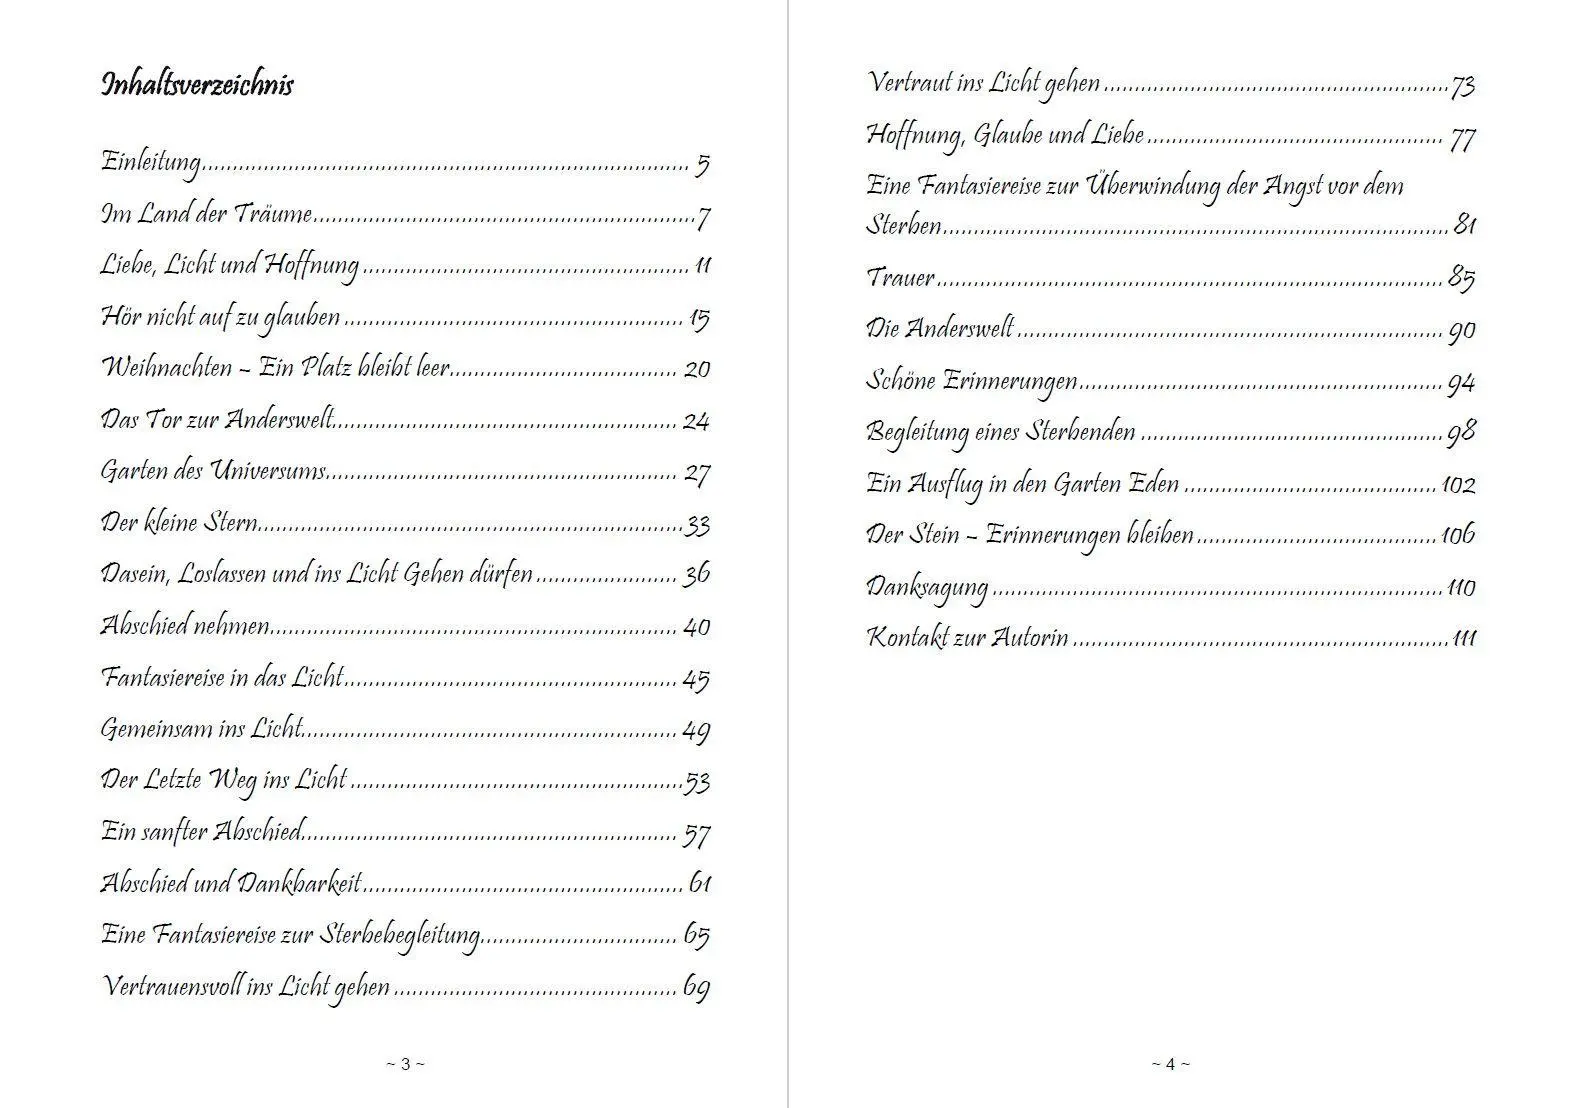 Inhaltsverzeichnis
Einleitung................................................................................ 5
Im Land der Träume...............................................................7
Liebe, Licht und Hoffnung...................................................... 11
Hör nicht auf zu glauben........................................................ 15
Weihnachten – Ein Platz bleibt leer...................................... 20
Das Tor zur Anderswelt......................................................... 24
Garten des Universums.......................................................... 27
Der kleine Stern......................................................................33
Dasein, Loslassen und ins Licht Gehen dürfen....................... 36
Abschied nehmen................................................................... 40
Fantasiereise in das Licht....................................................... 45
Gemeinsam ins Licht.............................................................. 49
Der Letzte Weg ins Licht.......................................................53
Ein sanfter Abschied.............................................................. 57
Abschied und Dankbarkeit..................................................... 61
Eine Fantasiereise zur Sterbebegleitung................................ 65
Vertrauensvoll ins Licht gehen............................................... 69
~ 3 ~
Vertraut ins Licht gehen.........................................................73
Hoffnung, Glaube und Liebe................................................. 77
Eine Fantasiereise zur Überwindung der Angst vor dem
Sterben................................................................................... 81
Trauer.................................................................................... 85
Die Anderswelt...................................................................... 90
Schöne Erinnerungen............................................................ 94
Begleitung eines Sterbenden..................................................98
Ein Ausflug in den Garten Eden..........................................102
Der Stein – Erinnerungen bleiben........................................106
Danksagung..........................................................................110
Kontakt zur Autorin..............................................................111
~ 4 ~